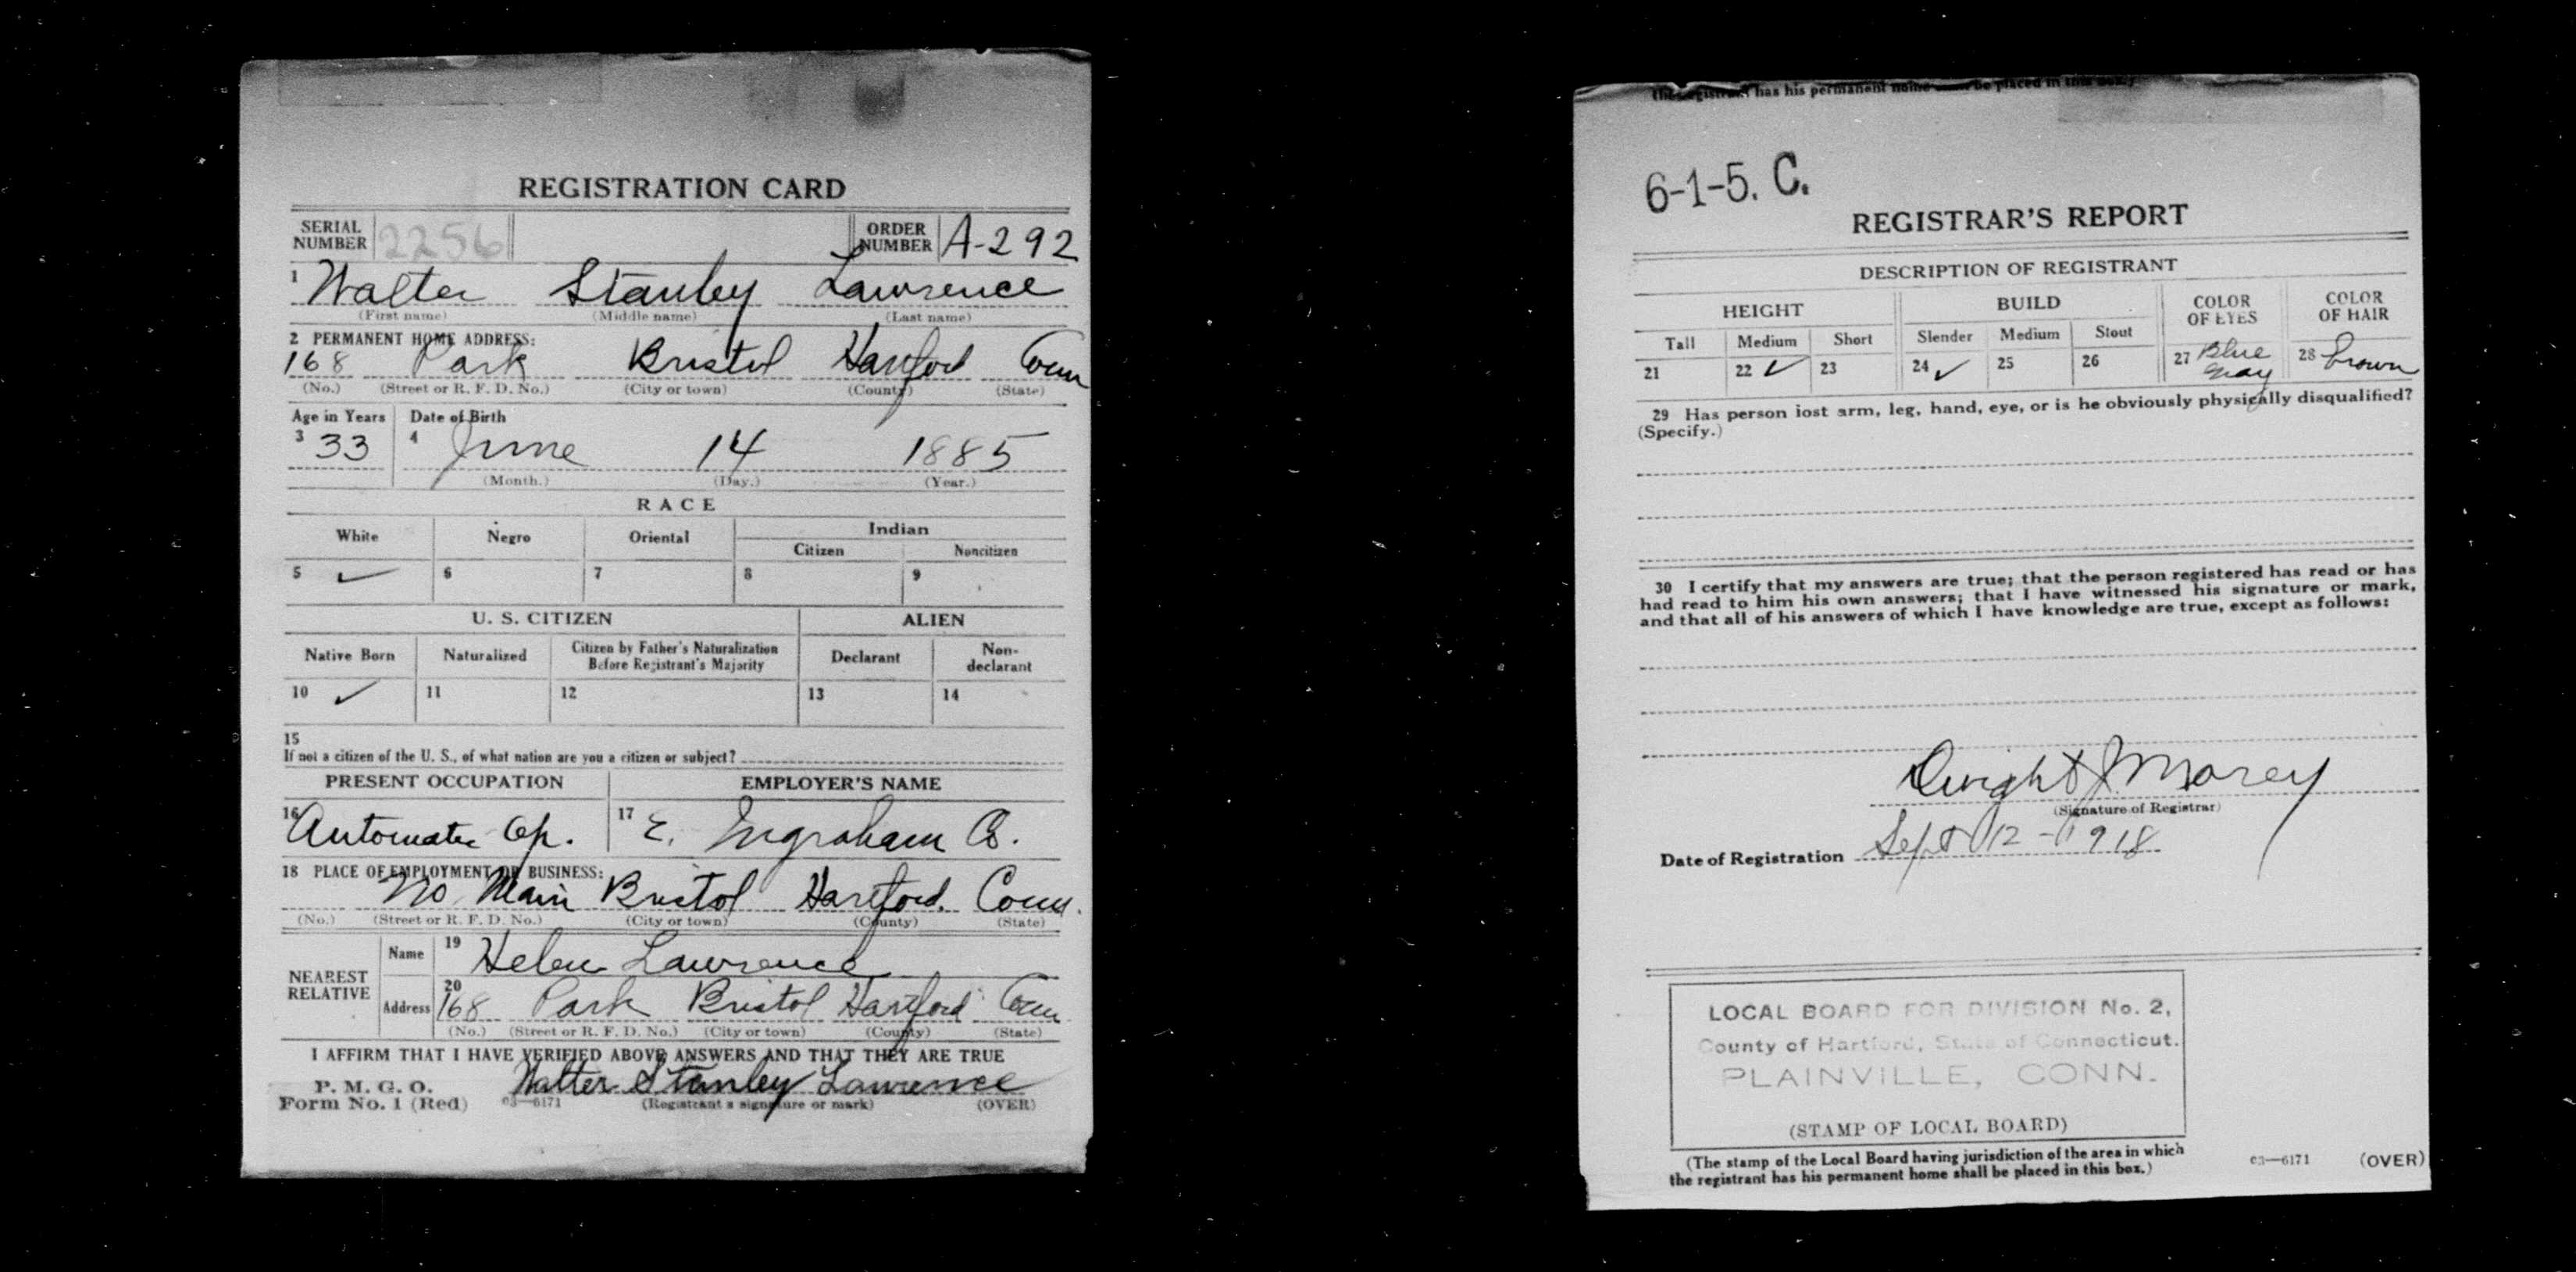 REGISTRATION CARD
SERIAL NUMBER 2256 ORDER NUMBER A-292
1 Walter Stanley Lawrence
(First name) (Middle name) (Last name)
2 PERMANENT HOME ADDRESS:
168 Park Bristol Hartford Conn
(No.) (Street or R. F. D. No.) (City or town) (County) (State)
Age in Years Date of Birth
3 33 4 June 14 1885
(Month.) (Day.) (Year.)
RACE
White Negro Oriental Indian
Citizen Noncitizen
5 ✓ 6 7 8 9
U. S. CITIZEN ALIEN
Native Born Naturalized Citizen by Father's Naturalization Before Registrant's Majority Declarant Non-declarant
10 ✓ 11 12 13 14
15
If not a citizen of the U. S., of what nation are you a citizen or subject?
PRESENT OCCUPATION EMPLOYER'S NAME
16 Automatic Op. 17 E. Ingraham Co.
18 PLACE OF EMPLOYMENT OR BUSINESS:
No. Main Bristol Hartford. Conn.
(No.) (Street or R. F. D. No.) (City or town) (County) (State)
NEAREST RELATIVE
Name 19 Helen Lawrence
Address 20 168 Park Bristol Hartford Conn
(No.) (Street or R. F. D. No.) (City or town) (County) (State)
I AFFIRM THAT I HAVE VERIFIED ABOVE ANSWERS AND THAT THEY ARE TRUE
P. M. G. O.
Form No. 1 (Red) 03—6171 Walter Stanley Lawrence
(Registrant's signature or mark) (OVER)
the registrant has his permanent home shall be placed in this box.)
6-1-5. C.
REGISTRAR'S REPORT
DESCRIPTION OF REGISTRANT
HEIGHT BUILD COLOR OF EYES COLOR OF HAIR
Tall Medium Short Slender Medium Stout
21 22 ✓ 23 24 ✓ 25 26 27 Blue Gray 28 brown
29 Has person lost arm, leg, hand, eye, or is he obviously physically disqualified?
(Specify.)
30 I certify that my answers are true; that the person registered has read or has
had read to him his own answers; that I have witnessed his signature or mark,
and that all of his answers of which I have knowledge are true, except as follows:
Dwight J. Morey
(Signature of Registrar)
Date of Registration Sept 12 - 1918
LOCAL BOARD FOR DIVISION No. 2,
County of Hartford, State of Connecticut.
PLAINVILLE, CONN.
(STAMP OF LOCAL BOARD)
(The stamp of the Local Board having jurisdiction of the area in which
the registrant has his permanent home shall be placed in this box.)
03—6171 (OVER)